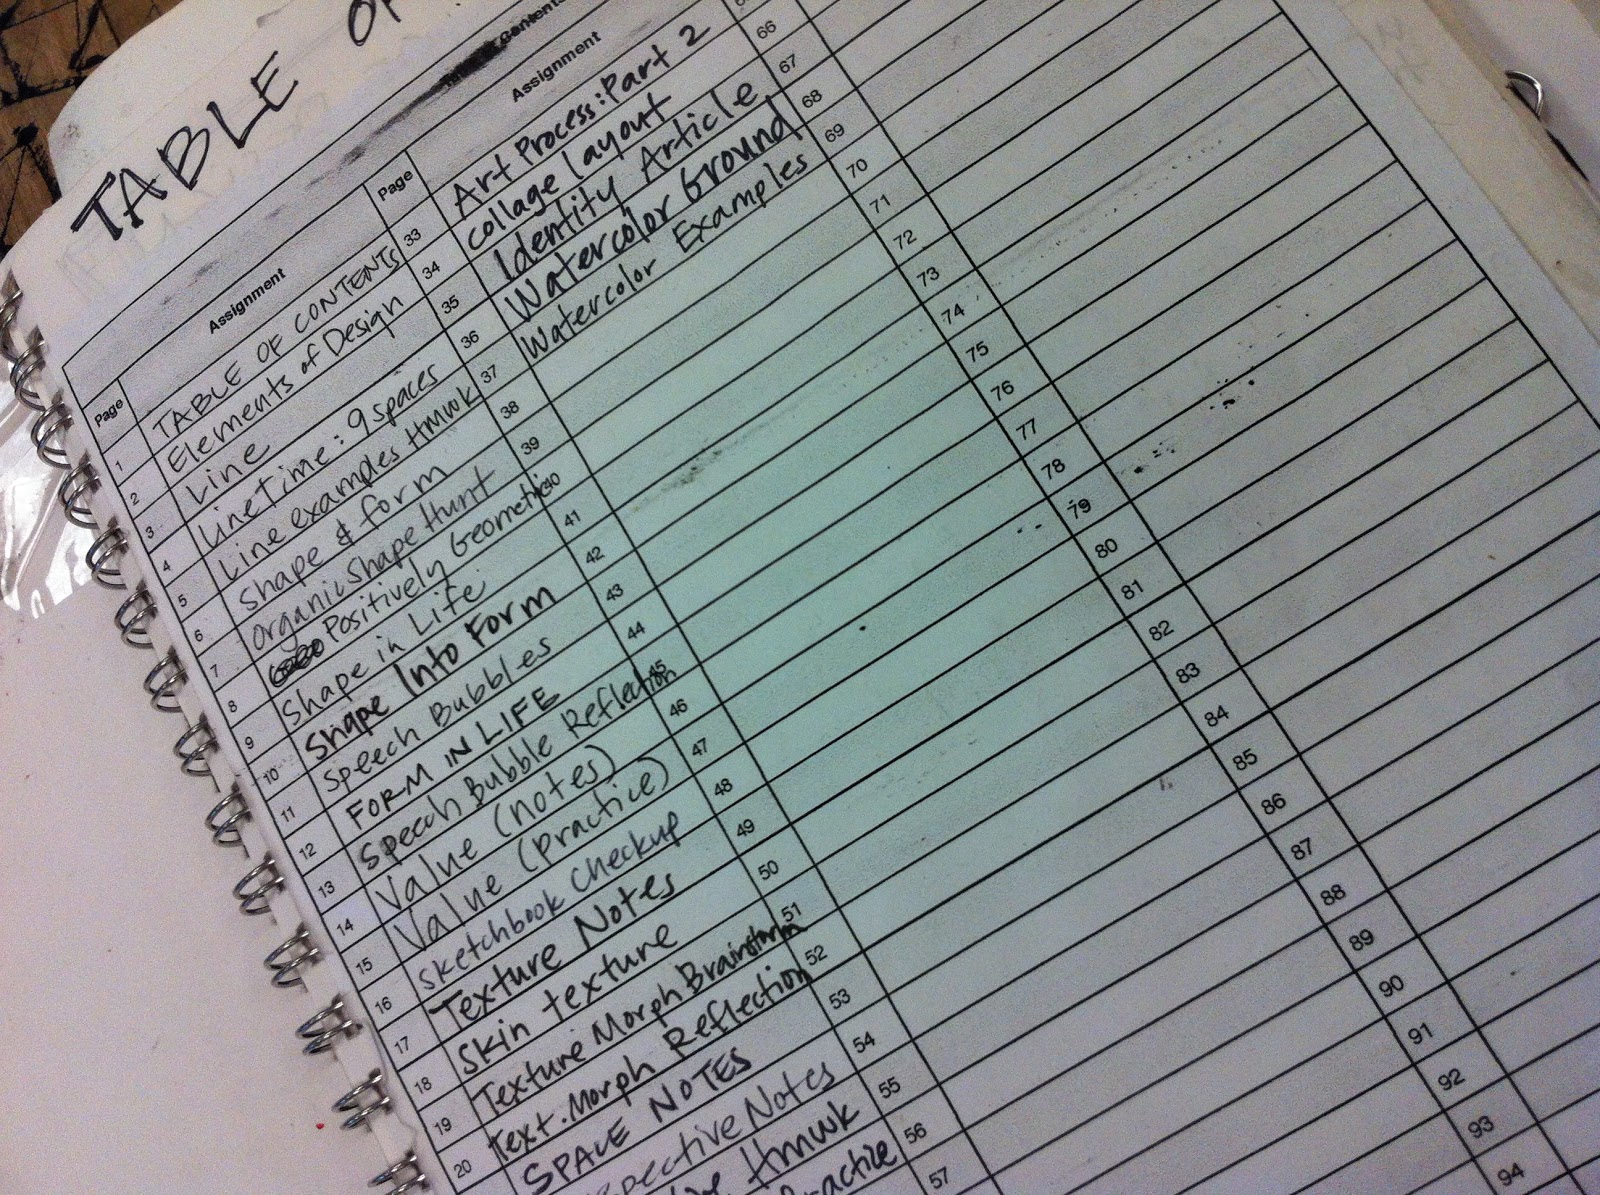 TABLE
Contents
Page Assignment
1 TABLE OF CONTENTS
2 Elements of Design
3 Line
4 Line Time: 9 spaces
5 Line examples HMWK
6 Shape & form
7 Organic Shape Hunt
8 Positively Geometric
9 Shape in Life
10 Shape Into Form
11 Speech Bubbles
12 FORM IN LIFE
13 Speech Bubble Reflection
14 Value (notes)
15 Value (practice)
16 sketchbook checkup
17 Texture Notes
18 Skin texture
19 Texture Morph Brainstorm
20 Text. Morph Reflection
SPACE NOTES
Notes
Hmwk
Page Assignment
33 Art Process: Part 2
34 collage layout
35 Identity Article
36 Watercolor Ground
37 Watercolor Examples
38
39
40
41
42
43
44
45
46
47
48
49
50
51
52
53
54
55
56
57
66
67
68
69
70
71
72
73
74
75
76
77
78
79
80
81
82
83
84
85
86
87
88
89
90
91
92
93
94